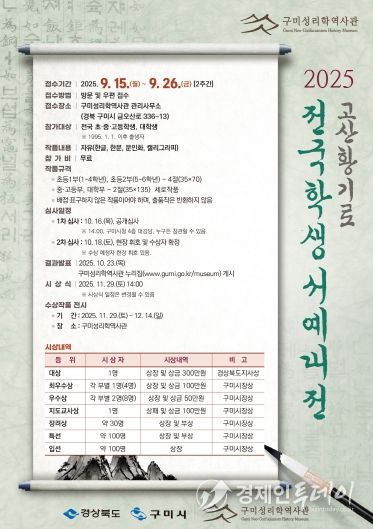 구미성리학역사관
Gumi Neo-Confucianism History Museum
2025
고산황기로
전국학생서예대전
접수기간 | 2025. 9. 15.(월) ~ 9. 26.(금) [2주간]
접수방법 | 방문 및 우편 접수
접수장소 | 구미성리학역사관 관리사무소
(경북 구미시 금오산로 336-13)
참가대상 | 전국 초·중·고등학생, 대학생
※ 1995. 1. 1. 이후 출생자
작품내용 | 자유(한글, 한문, 문인화, 캘리그라피)
참 가 비 | 무료
작품규격
◦ 초등1부(1~4학년), 초등2부(5~6학년) - 4절(35×70)
◦ 중·고등부, 대학부 - 2절(35×135) 세로작품
심사일정
◦ 1차 심사 : 10. 16.(목), 공개심사
※ 14:00, 구미시청 4층 대강당, 누구든 참관할 수 있음.
◦ 2차 심사 : 10. 18.(토), 현장 휘호 및 수상자 확정
※ 수상 예정자 현장 휘호 있음.
결과발표 | 2025. 10. 23.(목)
구미성리학역사관 누리집(www.gumi.go.kr/museum) 게시
시 상 식 | 2025. 11. 29.(토) 14:00
※ 시상식 일정은 변경될 수 있음
수상작품 전시
◦ 기 간 : 2025. 11. 29.(토) ~ 12. 14.(일)
◦ 장 소 : 구미성리학역사관
시상내역
등 위 시 상 자 시상내역 비 고
대상 1명 상장 및 상금 300만원 경상북도지사상
최우수상 각 부별 1명(4명) 상장 및 상금 100만원 구미시장상
우수상 각 부별 2명(8명) 상장 및 상금 50만원 구미시장상
지도교사상 1명 상패 및 상금 100만원 구미시장상
장려상 약 30명 상장 및 부상 구미시장상
특선 약 100명 상장 및 부상 구미시장상
입선 약 100명 상장 구미시장상
경상북도 구미시 구미성리학역사관
Gumi Neo-Confucianism History Museum
경제인투데이